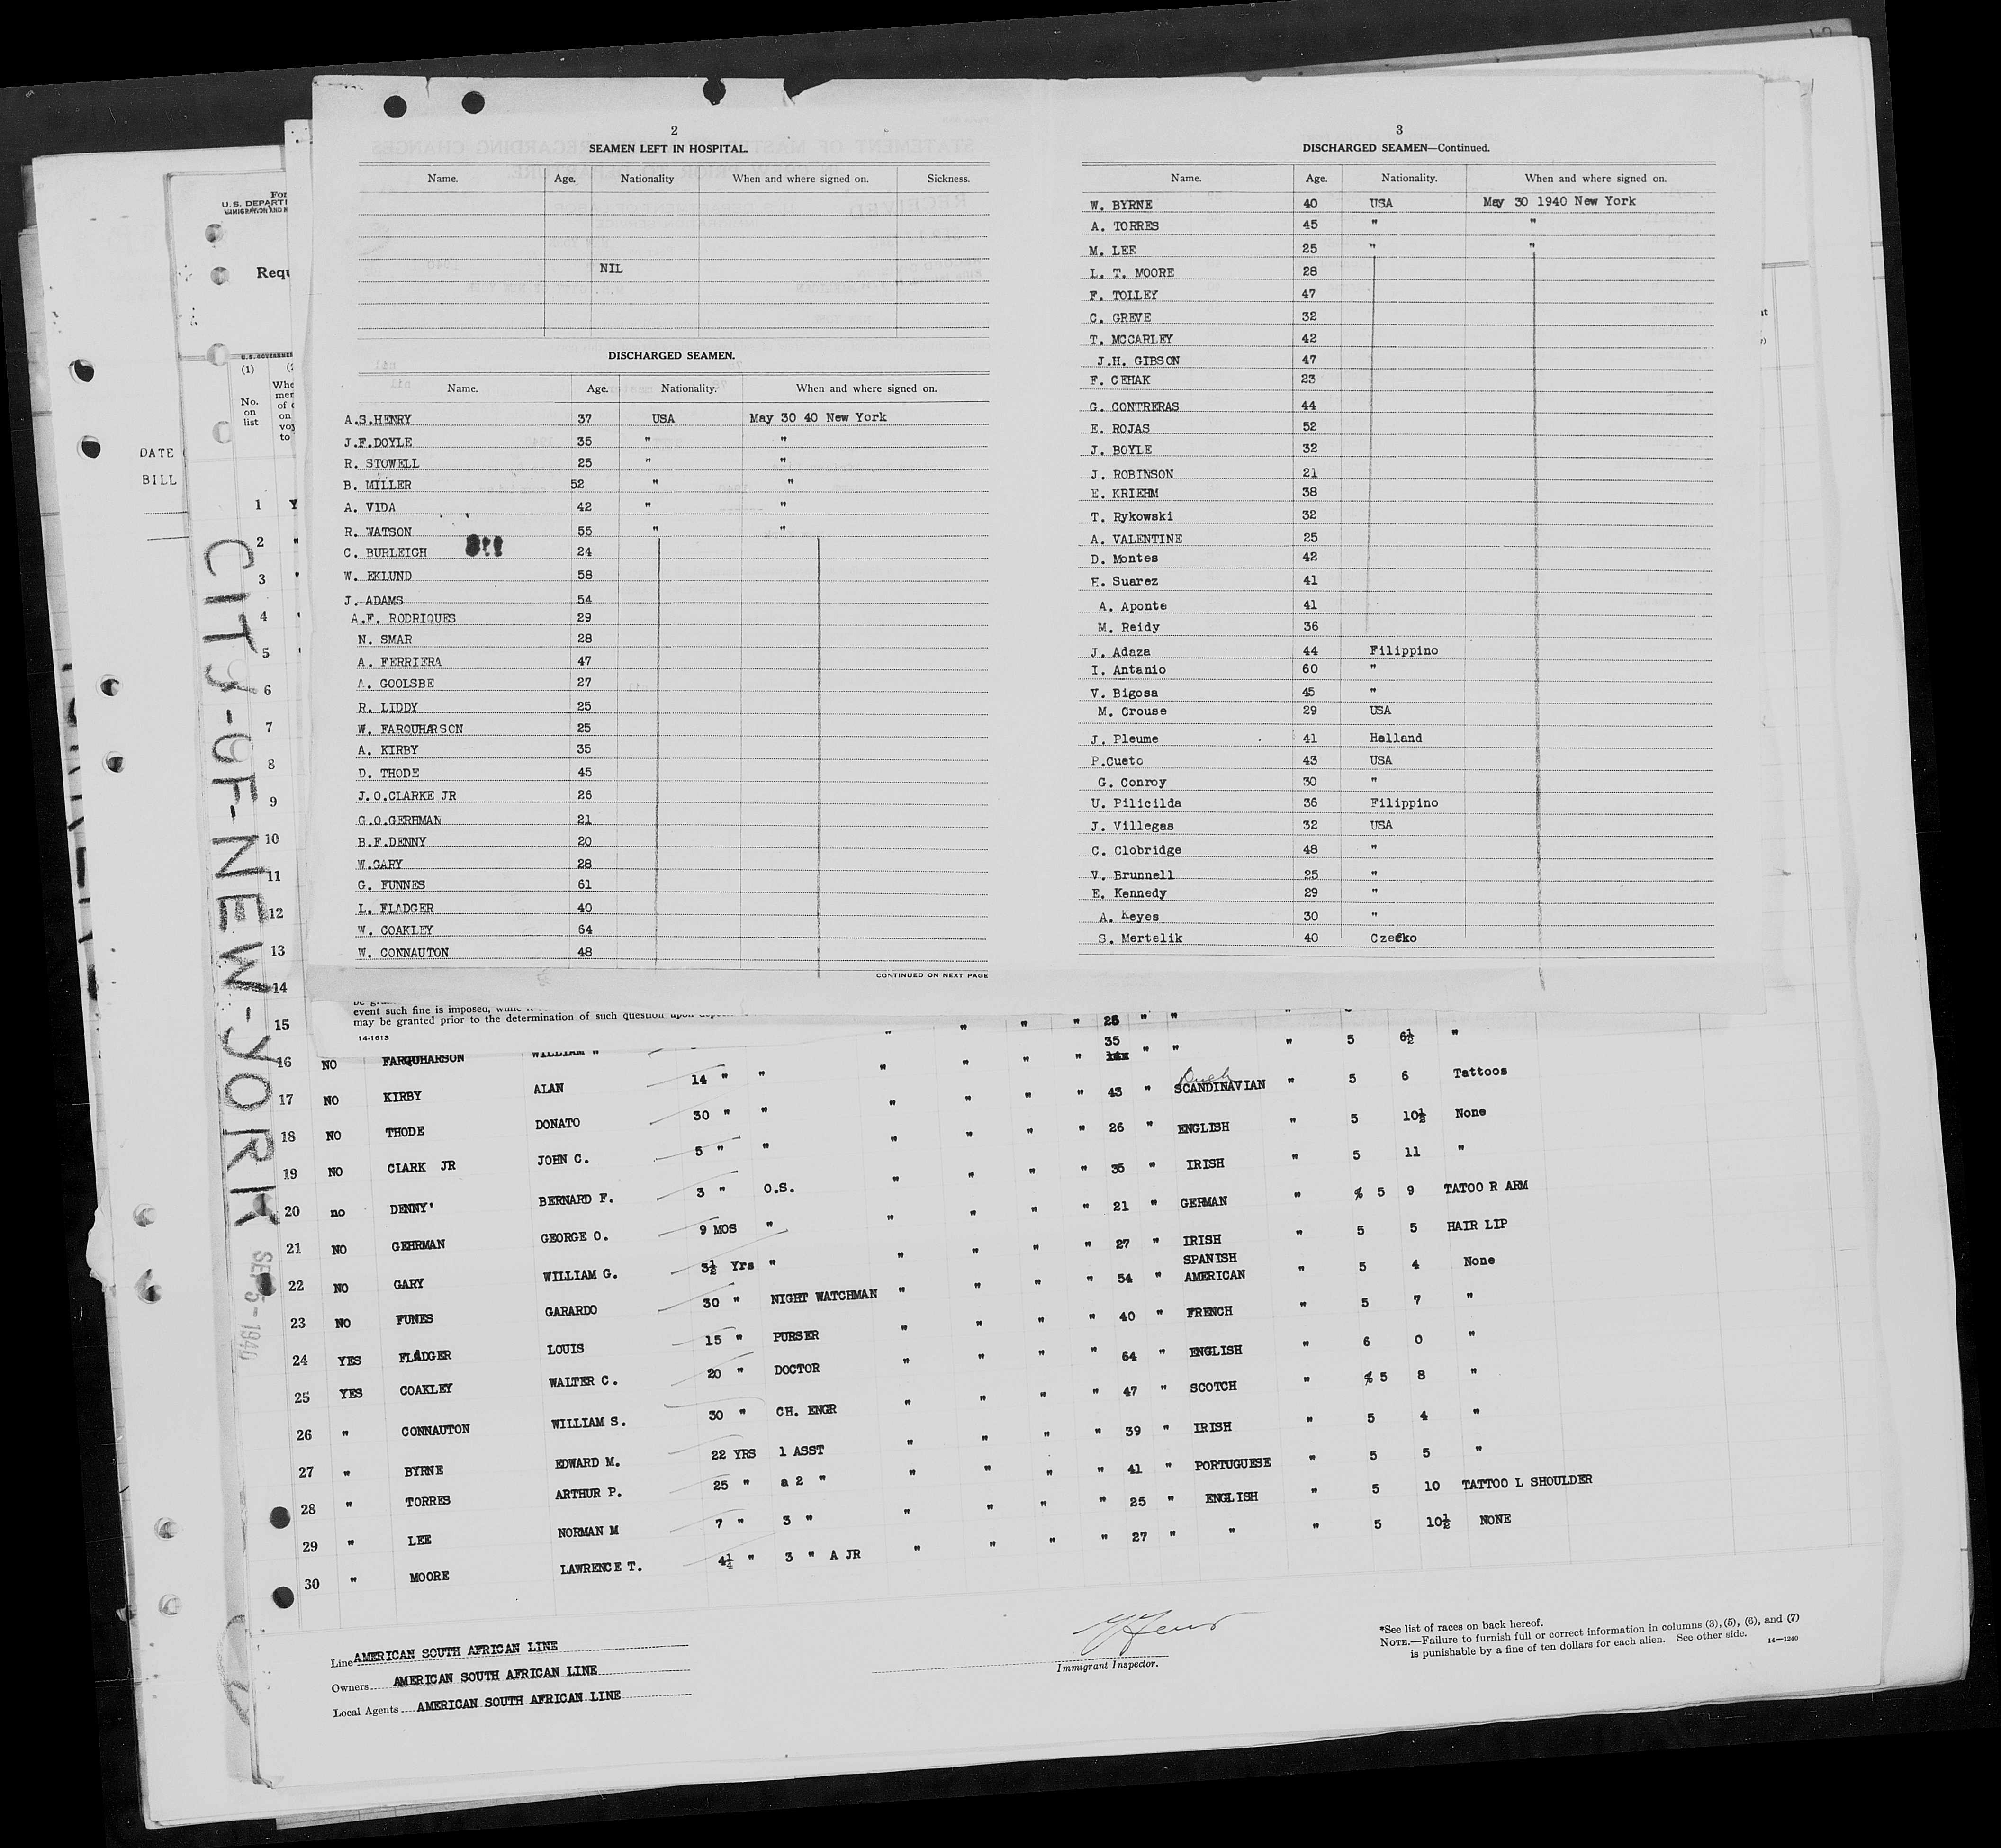 2
SEAMEN LEFT IN HOSPITAL.
Name. Age. Nationality When and where signed on. Sickness.
NIL
DISCHARGED SEAMEN.
Name. Age. Nationality. When and where signed on.
A.S.HENRY 37 USA May 30 40 New York
J.F.DOYLE 35 " "
R. STOWELL 25 " "
B. MILLER 52 " "
A. VIDA 42 " "
R. WATSON 55 " "
C. BURLEIGH 24
W. EKLUND 58
J. ADAMS 54
A.F. RODRIQUES 29
N. SMAR 28
A. FERRIERA 47
A. GOOLSBE 27
R. LIDDY 25
W. FARQUHARSON 25
A. KIRBY 35
D. THODE 45
J.O.CLARKE JR 26
G.O.GERHMAN 21
B.F.DENNY 20
W.GARY 28
G. FUNNES 61
L. FLADGER 40
W. COAKLEY 64
W. CONNAUTON 48
CONTINUED ON NEXT PAGE
3
DISCHARGED SEAMEN—Continued.
Name. Age. Nationality. When and where signed on.
W. BYRNE 40 USA May 30 1940 New York
A. TORRES 45 " "
M. LEE 25 " "
L. T. MOORE 28
F. TOLLEY 47
C. GREVE 32
T. MCCARLEY 42
J.H. GIBSON 47
F. CEHAK 23
G. CONTRERAS 44
E. ROJAS 52
J. BOYLE 32
J. ROBINSON 21
E. KRIEHM 38
T. Rykowski 32
A. VALENTINE 25
D. Montes 42
E. Suarez 41
A. Aponte 41
M. Reidy 36
J. Adaza 44 Filippino
I. Antanio 60 "
V. Bigosa 45 "
M. Crouse 29 USA
J. Pleume 41 Holland
P.Cueto 43 USA
G. Conroy 30 "
U. Pilicilda 36 Filippino
J. Villegas 32 USA
C. Clobridge 48 "
V. Brunnell 25 "
E. Kennedy 29 "
A. Keyes 30 "
S. Mertelik 40 Czecko
U.S. DEPARTM
Requ
(1)
No. on list
DATE
BILL
1 Y
2 "
3
4
5
6
7
8
9
10
11
12
13
14
CITY-OF-NEW-YORK
SEP 5-1940
event such fine is imposed,
may be granted prior to the determination of such question upon
14-1613
15 " " " 25 " "
16 NO FARQUHARSON WILLIAM W " " " 35 " " " 5 6½ "
17 NO KIRBY ALAN 14 " " " " " 43 " SCANDINAVIAN " 5 6 Tattoos
18 NO THODE DONATO 30 " " " " " 26 " ENGLISH " 5 10½ None
19 NO CLARK JR JOHN C. 5 " " " " " 35 " IRISH " 5 11 "
20 no DENNY' BERNARD F. 3 " O.S. " " " 21 " GERMAN " 5 9 TATOO R ARM
21 NO GEHRMAN GEORGE O. 9 MOS " " " " 27 " IRISH " 5 5 HAIR LIP
22 NO GARY WILLIAM G. 3½ Yrs " " " " 54 " SPANISH AMERICAN " 5 4 None
23 NO FUNES GARARDO 30 " NIGHT WATCHMAN " " " 40 " FRENCH " 5 7 "
24 YES FLADGER LOUIS 15 " PURSER " " " 64 " ENGLISH " 6 0 "
25 YES COAKLEY WALTER C. 20 " DOCTOR " " " 47 " SCOTCH " 5 8 "
26 " CONNAUTON WILLIAM S. 30 " CH. ENGR " " " 39 " IRISH " 5 4 "
27 " BYRNE EDWARD M. 22 YRS 1 ASST " " " 41 " PORTUGUESE " 5 5 "
28 " TORRES ARTHUR P. 25 " a 2 " " " " 25 " ENGLISH " 5 10 TATTOO L SHOULDER
29 " LEE NORMAN M 7 " 3 " " " " 27 " " " 5 10½ NONE
30 " MOORE LAWRENCE T. 4¼ " 3 " A JR " " "
Line AMERICAN SOUTH AFRICAN LINE
Owners AMERICAN SOUTH AFRICAN LINE
Local Agents AMERICAN SOUTH AFRICAN LINE
Immigrant Inspector.
*See list of races on back hereof.
NOTE.—Failure to furnish full or correct information in columns (3), (5), (6), and (7)
is punishable by a fine of ten dollars for each alien. See other side. 14—1240